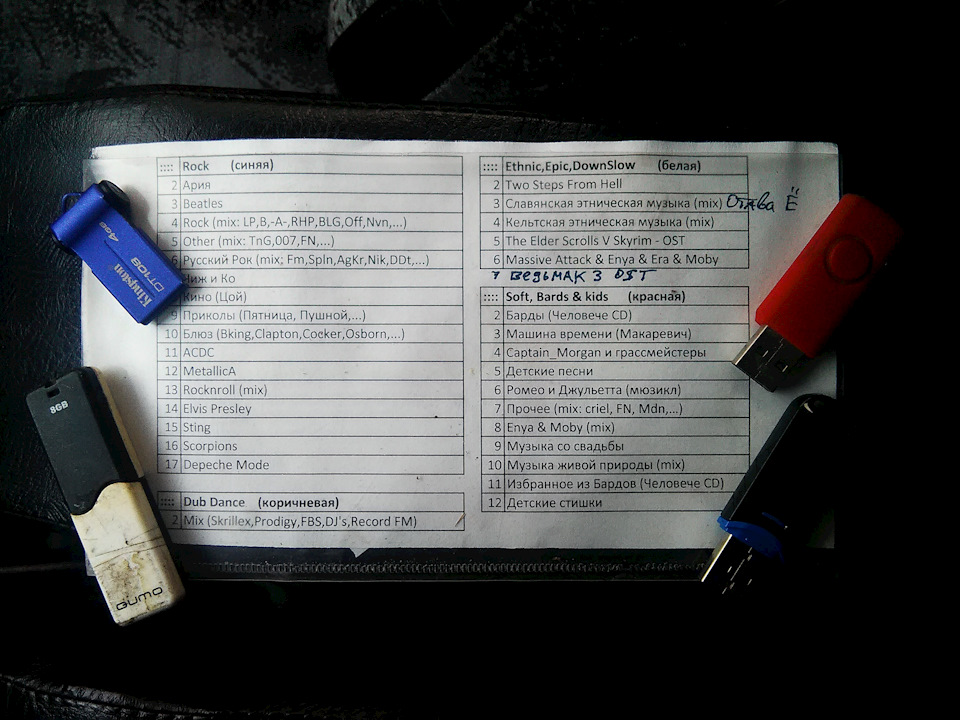 :::: Rock (синяя)
2 Ария
3 Beatles
4 Rock (mix: LP,B,-A-,RHP,BLG,Off,Nvn,...)
5 Other (mix: TnG,007,FN,...)
6 Русский Рок (mix; Fm,Spln,AgKr,Nik,DDt,...)
Чиж и Ко
Кино (Цой)
9 Приколы (Пятница, Пушной,...)
10 Блюз (Bking,Clapton,Cocker,Osborn,...)
11 ACDC
12 MetallicA
13 Rocknroll (mix)
14 Elvis Presley
15 Sting
16 Scorpions
17 Depeche Mode
:::: Dub Dance (коричневая)
2 Mix (Skrillex,Prodigy,FBS,DJ's,Record FM)
:::: Ethnic,Epic,DownSlow (белая)
2 Two Steps From Hell
3 Славянская этническая музыка (mix) Отава Ё
4 Кельтская этническая музыка (mix)
5 The Elder Scrolls V Skyrim - OST
6 Massive Attack & Enya & Era & Moby
7 ВЕДЬМАК 3 OST
:::: Soft, Bards & kids (красная)
2 Барды (Человече CD)
3 Машина времени (Макаревич)
4 Captain_Morgan и грассмейстеры
5 Детские песни
6 Ромео и Джульетта (мюзикл)
7 Прочее (mix: criel, FN, Mdn,...)
8 Enya & Moby (mix)
9 Музыка со свадьбы
10 Музыка живой природы (mix)
11 Избранное из Бардов (Человече CD)
12 Детские стишки
4GB
Kingston
DT108
8GB
QUMO